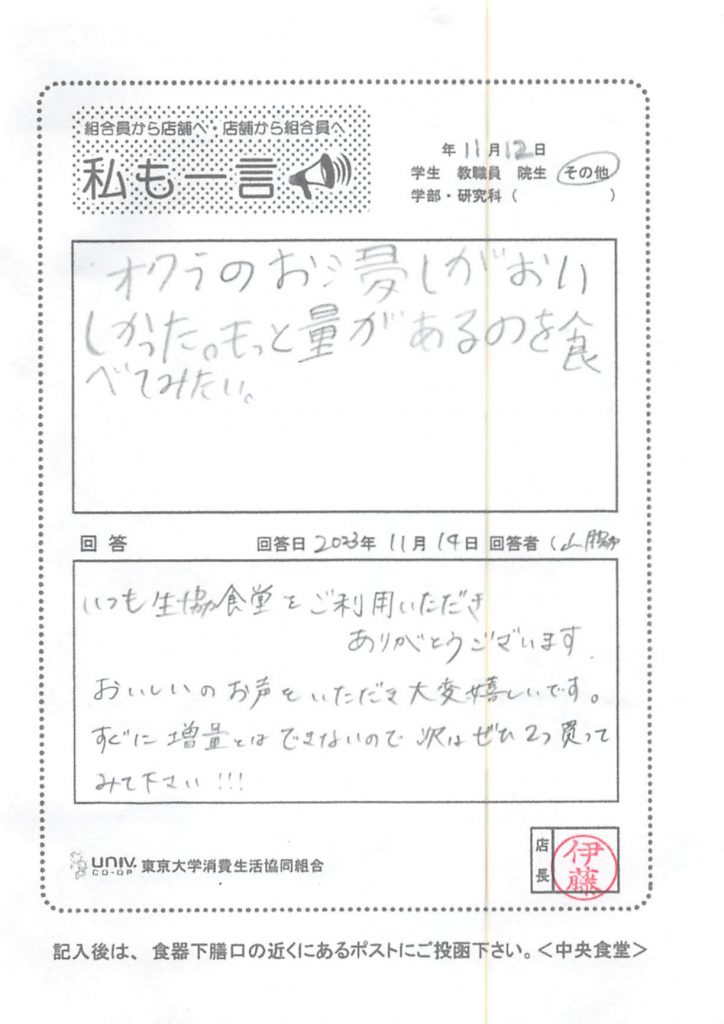 組合員から店舗へ・店舗から組合員へ
私も一言
年11月12日
学生 教職員 院生 その他
学部・研究科( )
オクラのおシ夢しがおい
しかった。もっと量があるのを食
べてみたい。
回答 回答日 2023年 11月 14日 回答者
いつも生協食堂をご利用いただき
ありがとうございます.
おいしいのお声をいただき大変嬉しいです。
すぐに増量とはできないので次はぜひ2つ買って
みて下さい!!!
UNIV. CO-OP 東京大学消費生活協同組合
店長 伊藤
記入後は、食器下膳口の近くにあるポストにご投函下さい。<中央食堂>